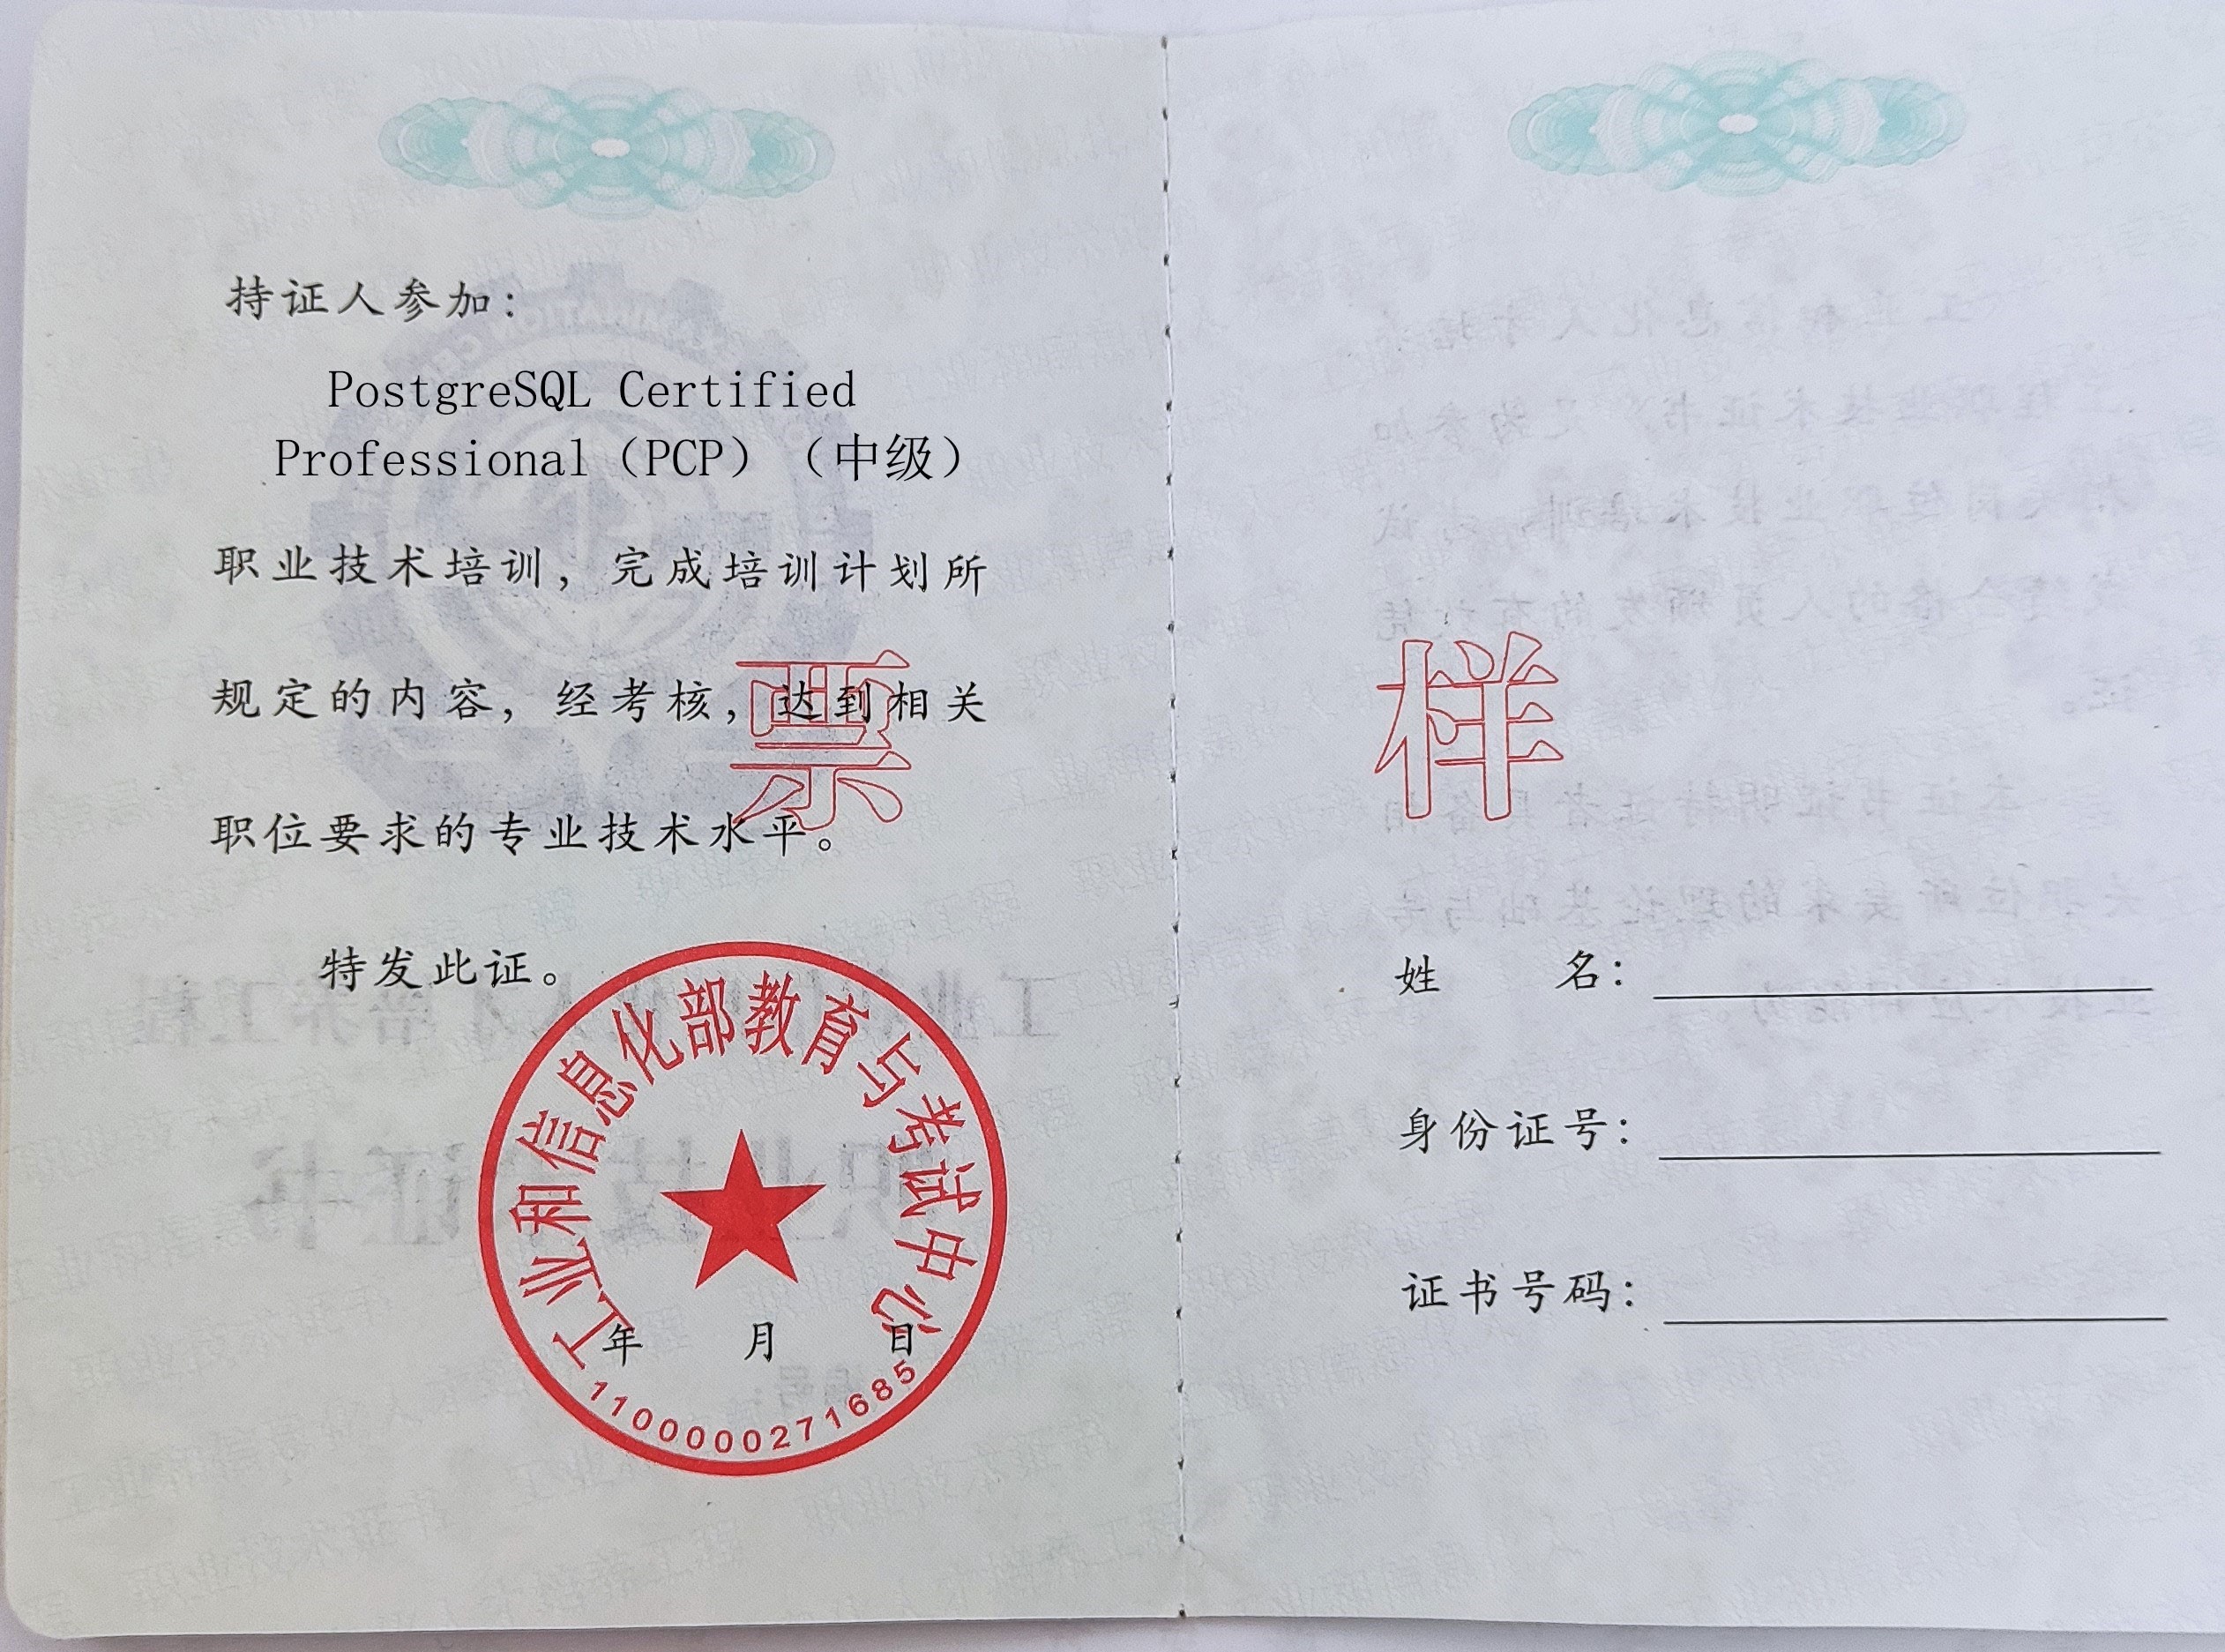 持证人参加：
PostgreSQL Certified
Professional（PCP）（中级）
职业技术培训，完成培训计划所
规定的内容，经考核，达到相关
职位要求的专业技术水平。
特发此证。
工业和信息化部教育与考试中心
年 月 日
1100000271685
票
样
姓 名：
身份证号：
证书号码：